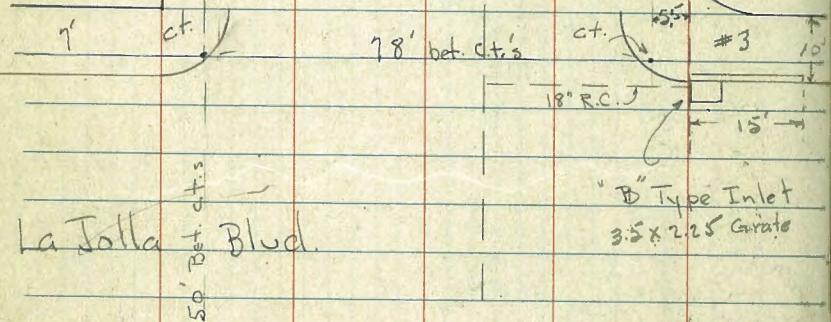 5.5
7' c.t. 78' bet. c.t.'s c.t. #3 10'
18" R.C.
15'
"B" Type Inlet
3.5 x 2.25 Grate
La Jolla Blvd.
50' Bet. c.t.s